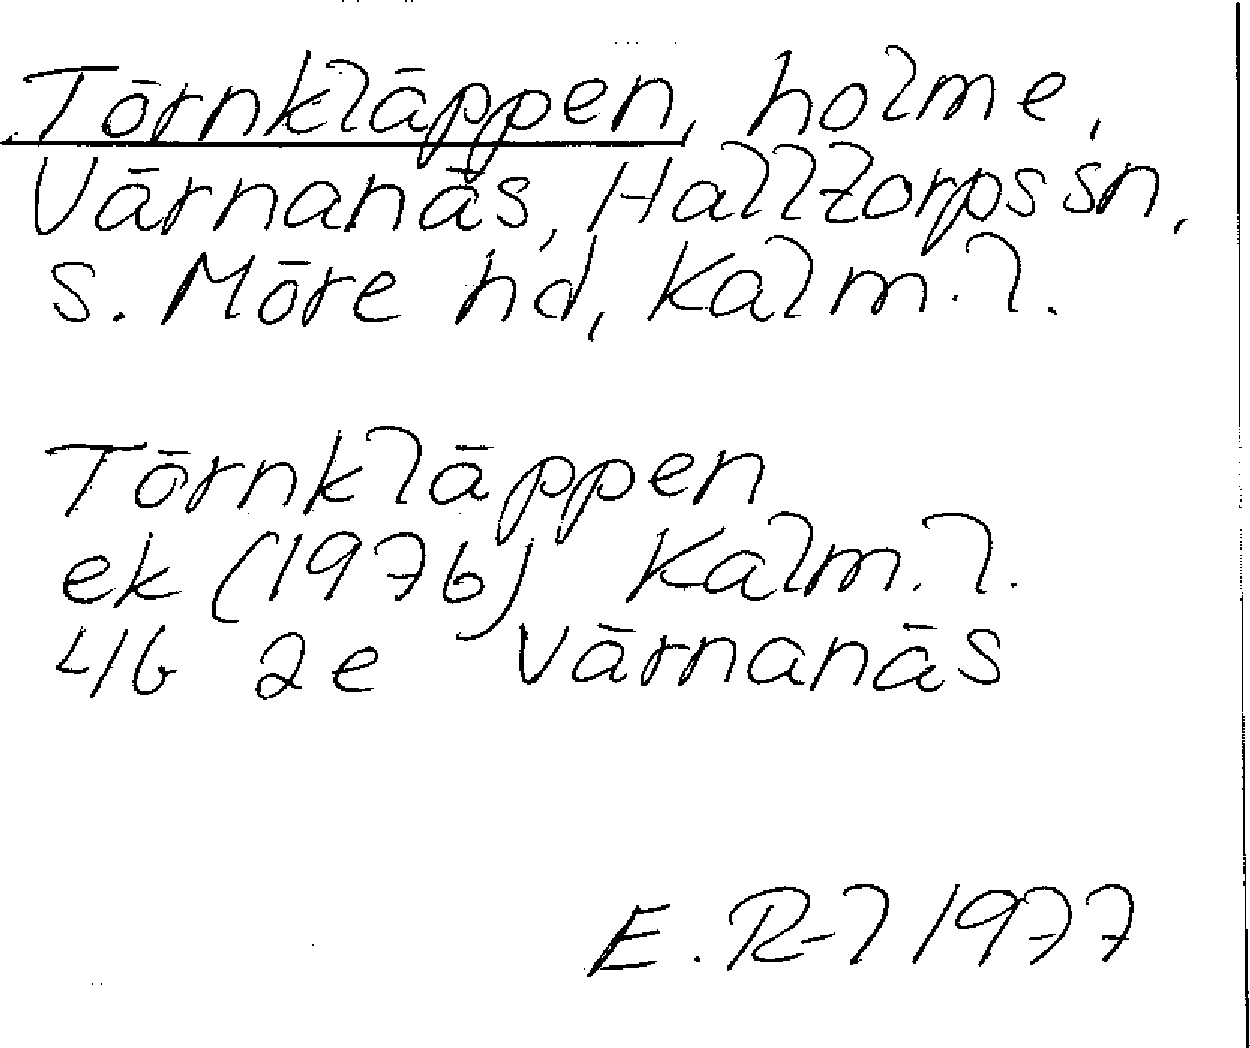 Törnkläppen, holme,
Värnanäs, Halltorps sn,
S. Möre hd, Kalm. l.
Törnkläppen
ek (1976) Kalm. l.
4 G 2e Värnanäs
E. R-l 1977